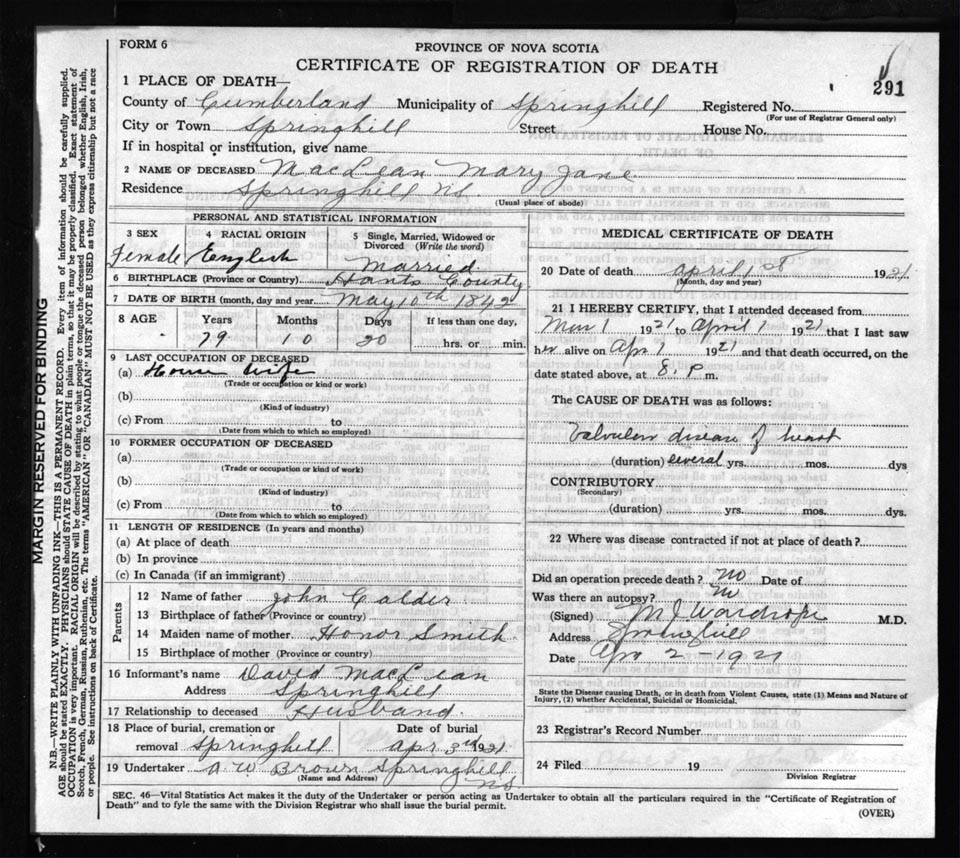 FORM 6
PROVINCE OF NOVA SCOTIA
CERTIFICATE OF REGISTRATION OF DEATH
291
1 PLACE OF DEATH—
County of Cumberland Municipality of Springhill Registered No.
(For use of Registrar General only)
City or Town Springhill Street House No.
If in hospital or institution, give name
2 NAME OF DECEASED MacLean Mary Jane
Residence Springhill N.S.
(Usual place of abode)
PERSONAL AND STATISTICAL INFORMATION
3 SEX 4 RACIAL ORIGIN 5 Single, Married, Widowed or Divorced (Write the word)
Female English Married
6 BIRTHPLACE (Province or Country) Hants County
7 DATE OF BIRTH (month, day and year) May 10th 1842
8 AGE Years Months Days If less than one day,
79 10 20 hrs. or min.
9 LAST OCCUPATION OF DECEASED
(a) House Wife
(Trade or occupation or kind or work)
(b)
(Kind of industry)
(c) From to
(Date from which to which so employed)
10 FORMER OCCUPATION OF DECEASED
(a)
(Trade or occupation or kind or work)
(b)
(Kind of industry)
(c) From to
(Date from which to which so employed)
11 LENGTH OF RESIDENCE (In years and months)
(a) At place of death
(b) In province
(c) In Canada (if an immigrant)
Parents
12 Name of father John Calder
13 Birthplace of father (Province or country)
14 Maiden name of mother Honor Smith
15 Birthplace of mother (Province or country)
16 Informant's name David MacLean
Address Springhill
17 Relationship to deceased Husband
18 Place of burial, cremation or Date of burial
removal Springhill Apr 3rd 1921
19 Undertaker A W Brown Springhill
(Name and Address) N.S.
MEDICAL CERTIFICATE OF DEATH
20 Date of death April 1st 1921
(Month, day and year)
21 I HEREBY CERTIFY, that I attended deceased from
Mar 1 1921 to April 1 1921 that I last saw
her alive on Apr 1 1921 and that death occurred, on the
date stated above, at 8. P m.
The CAUSE OF DEATH was as follows:
Valvular disease of heart
(duration) several yrs. mos. dys
CONTRIBUTORY
(Secondary)
(duration) yrs. mos. dys.
22 Where was disease contracted if not at place of death?
Did an operation precede death? no Date of
Was there an autopsy? no
(Signed) M J Wardrope M.D.
Address Springhill
Date Apr 2 - 1921
State the Disease causing Death, or in death from Violent Causes, state (1) Means and Nature of
Injury, (2) whether Accidental, Suicidal or Homicidal.
23 Registrar's Record Number
24 Filed 19
Division Registrar
SEC. 46—Vital Statistics Act makes it the duty of the Undertaker or person acting as Undertaker to obtain all the particulars required in the "Certificate of Registration of
Death" and to fyle the same with the Division Registrar who shall issue the burial permit.
(OVER)
MARGIN RESERVED FOR BINDING
N.B.—WRITE PLAINLY WITH UNFADING INK—THIS IS A PERMANENT RECORD. Every item of information should be carefully supplied.
AGE should be stated EXACTLY. PHYSICIANS should STATE CAUSE OF DEATH in plain terms, so that it may be properly classified. Exact statement of
OCCUPATION is very important. RACIAL ORIGIN will be described by stating to what people or tongue the deceased person belonged whether English, Irish,
Scotch, French, German, Russian, Ruthenian, etc. The terms "AMERICAN" OR "CANADIAN" MUST NOT BE USED as they express citizenship but not a race
or people. See instructions on back of Certificate.